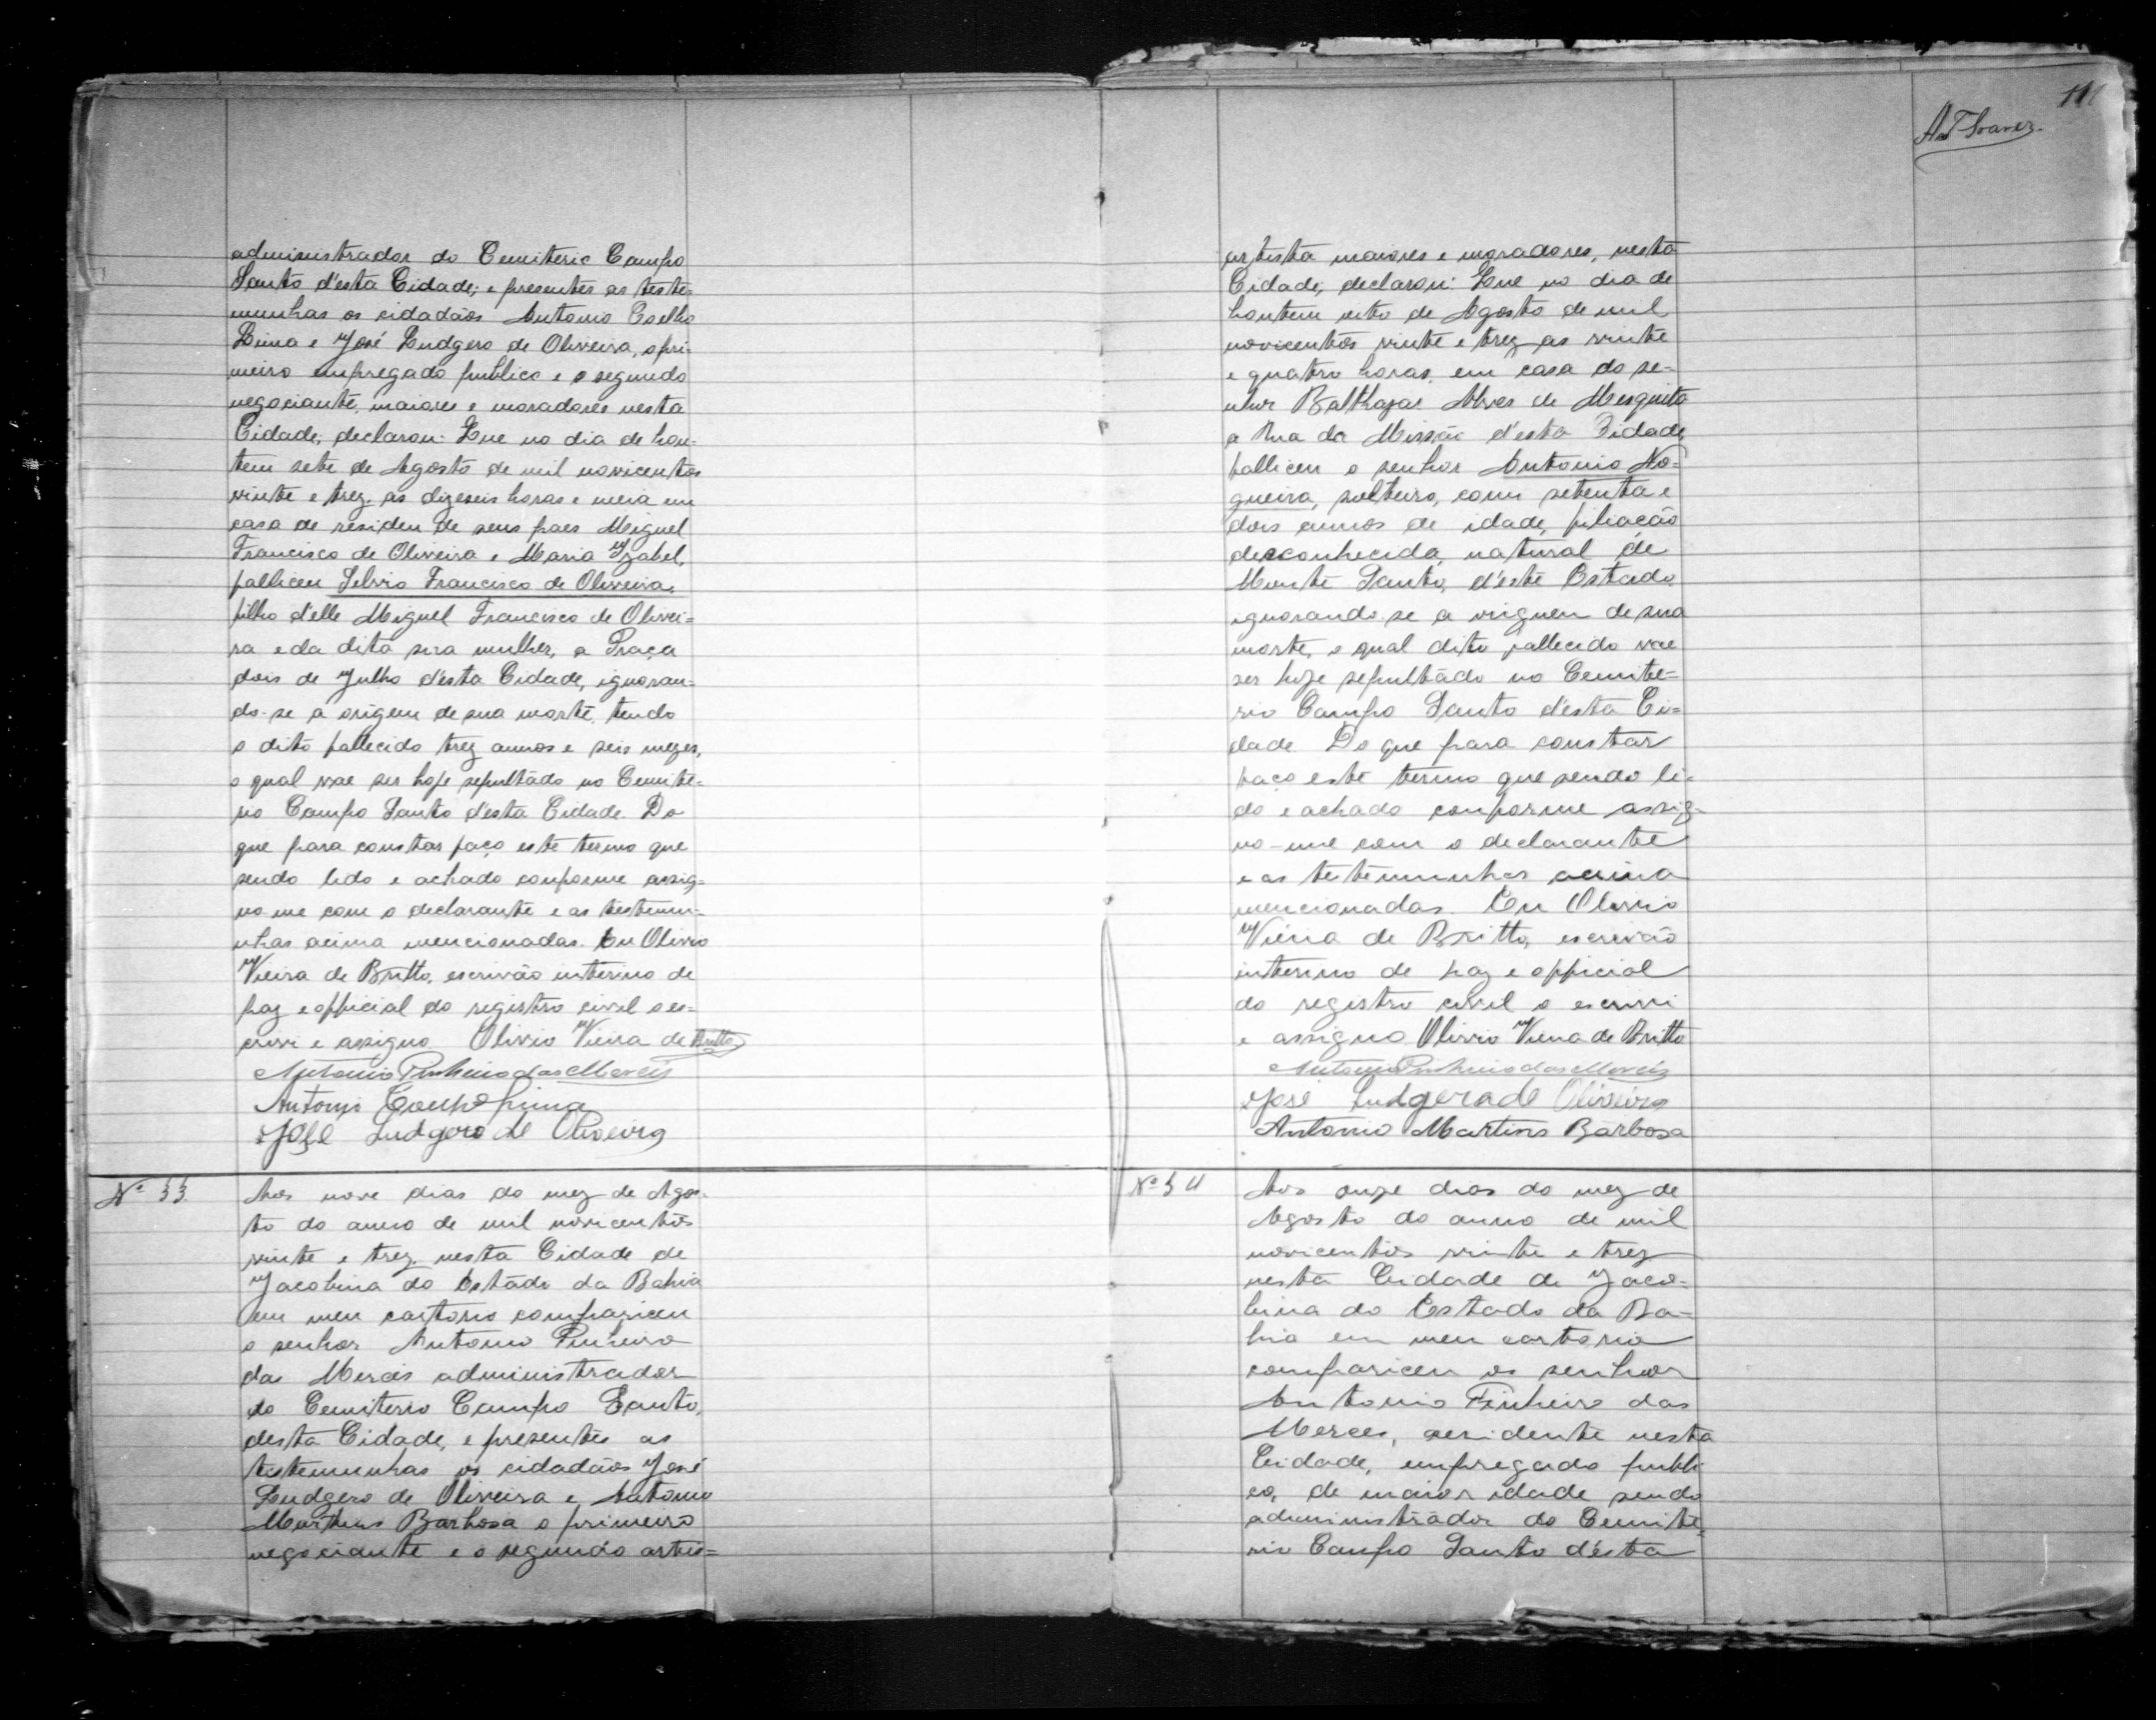 administrador do Cemiterio Campo
Santo d'esta Cidade; e presentes as teste-
munhas os cidadãos Antonio Coelho
Lima e José Ludgero de Oliveira, o pri-
meiro empregado publico e o segundo
negociante, maiores e moradores nesta
Cidade; declarou: Que no dia de hon-
tem sete de Agosto de mil novicentos
vinte e trez, as dizeseis horas e meia em
casa de residen de seus paes Miguel
Francisco de Oliveira e Maria Izabel,
falliceu Silvio Francisco de Oliveira,
filho d'elle Miguel Francisco de Olivei=
ra e da dita sua mulher, a Praça
dois de Julho d'esta Cidade, ignoran-
do-se a origem de sua morte, tendo
o dito fallecido trez annos e seis mezes,
o qual vae ser hoje sepultado no Cemite-
rio Campo Santo d'esta Cidade. Do
que para constar faço este termo que
sendo lido e achado conforme assig=
no-me com o declarante e as testemu-
nhas acima mencionadas. Eu Olivio
Vieira de Britto, escrivão interino de
paz e official do registro civil o es-
crivi e assigno Olivio Vieira de Britto
Antonio Pinheiro das Mercês
Antonio Coelho Lima
José Ludgero de Oliveira
Nº 33.
Aos nove dias do mez de Agos-
to do anno de mil novicentos
vinte e trez, nesta Cidade de
Jacobina do Estado da Bahia
em meu cartorio compariceu
o senhor Antonio Pinheiro
das Mercês administrador
do Cemiterio Campo Santo,
desta Cidade, e presentes as
testemunhas os cidadãos José
Ludgero de Oliveira e Antonio
Martins Barbosa o primeiro
negociante e o segundo artis=
111
artista maiores e moradores, nesta
Cidade, declarou: Que no dia de
hontem oito de Agosto de mil
novicentos vinte e trez as vinte
e quatro horas, em casa do se-
nhor Balthazar Alves de Mesquita
a Rua da Missão d'esta Cidade,
falliceu o senhor Antonio No=
gueira, solteiro, com setenta e
dois annos de idade, filiação
desconhecida, natural de
Monte Santo, d'este Estado,
ignorando-se a origuem de sua
morte, o qual dito fallecido vae
ser hoje sepultado no Cemite=
rio Campo Santo d'esta Ci=
dade Do que para constar
faço este termo que sendo li-
do e achado conforme assig-
no-me com o declarante
e as testemunhas acima
mencionadas. Eu Olivio
Vieira de Britto, escrivão
interino de paz e official
do registro civil o escrivi
e assigno Olivio Vieira de Britto
Antonio Pinheiro das Mercês
José Ludgero de Oliveira
Antonio Martins Barbosa
Nº 34
Aos onze dias do mez de
Agosto do anno de mil
novicentos vinte e trez
nesta Cidade de Jaco-
bina do Estado da Ba-
hia em meu cartorio
compariceu os senhor
Antonio Pinheiro das
Merces, residente nesta
Cidade, empregado publi
co, de maior idade sendo
administrador do Cemite=
rio Campo Santo d'ésta